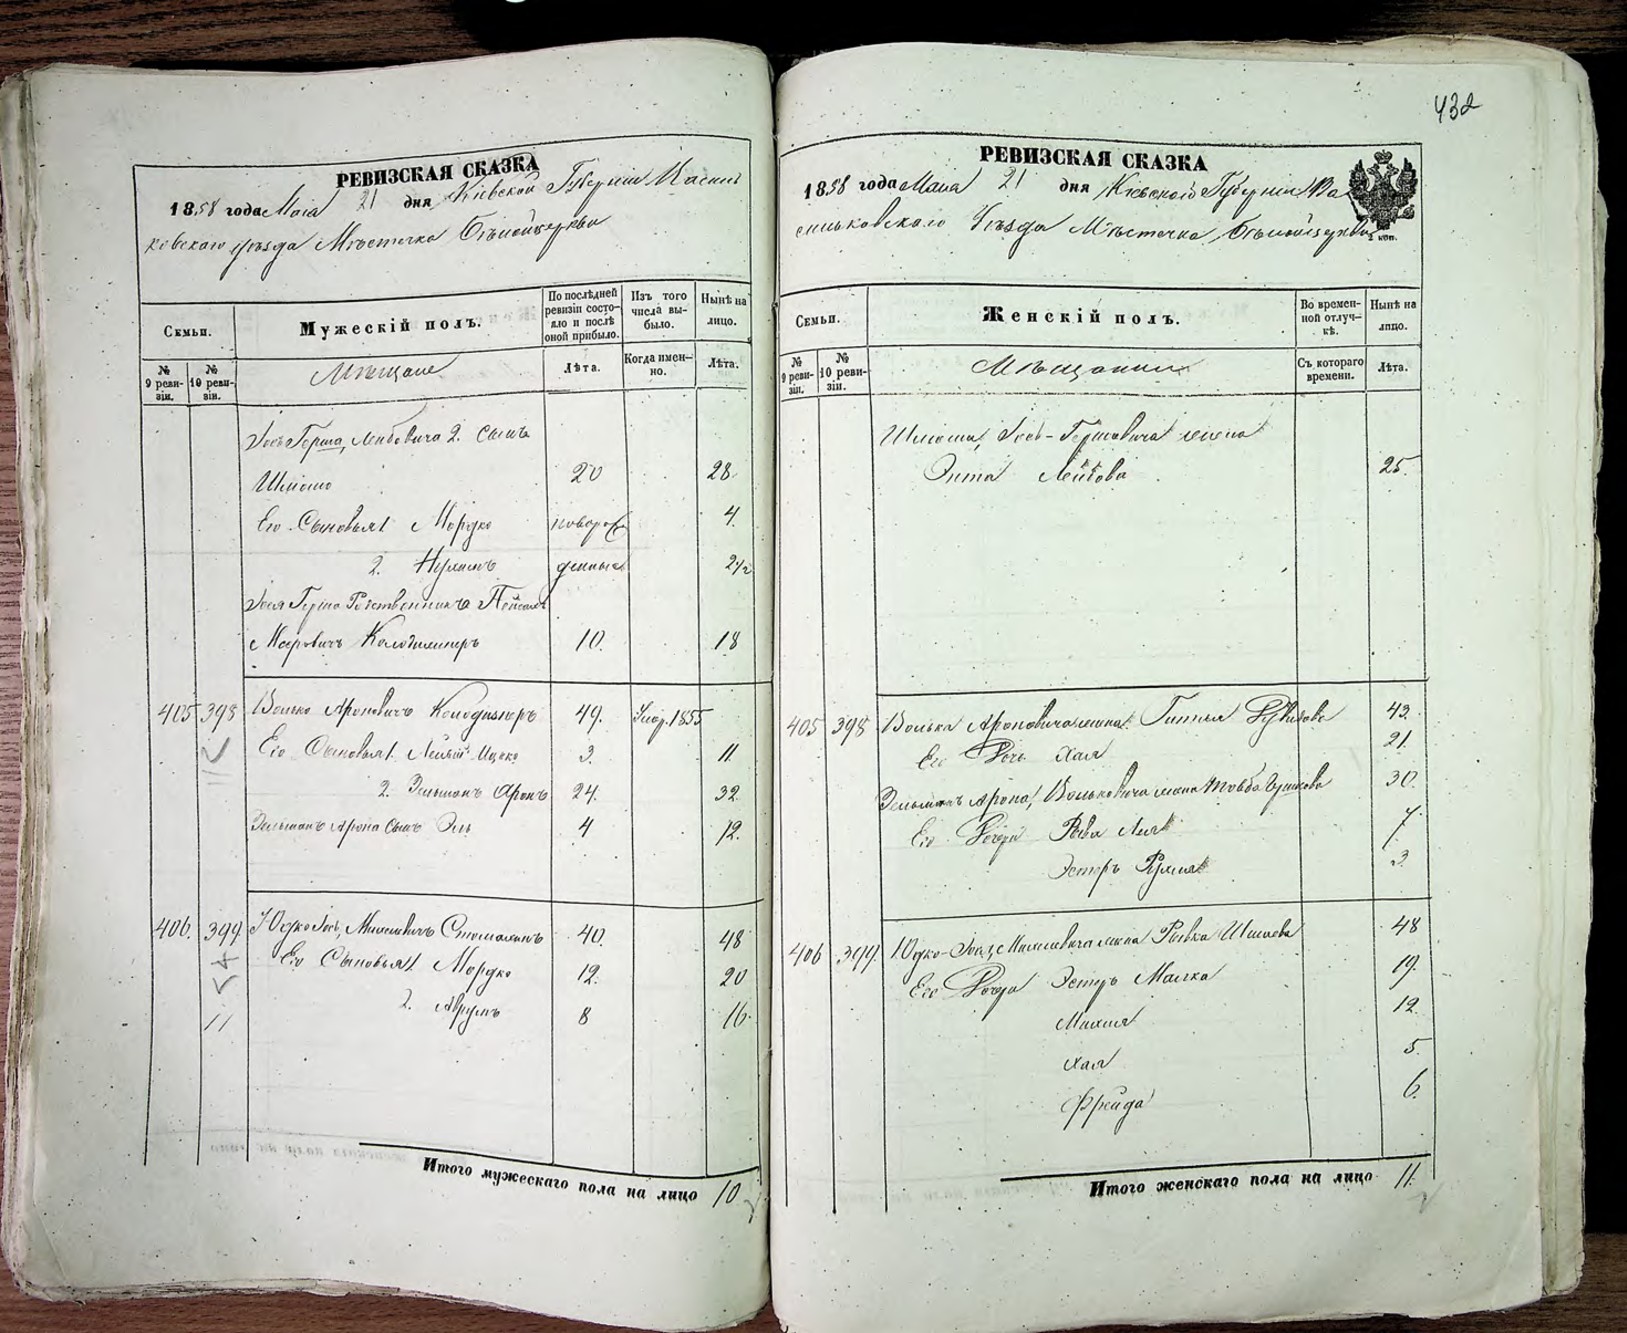 432
РЕВИЗСКАЯ СКАЗКА
1858 года Маія 21 дня Кіевской Губерніи Василь
ковскаго уѣзда Мѣстечка Бѣлойцеркви
Семьи.
Мужескій полъ.
По послѣдней ревизіи состо-
яло и послѣ
оной прибыло.
Изъ того
числа вы-
было.
Нынѣ на
лицо.
№
9 реви-
зіи.
№
10 реви-
зіи.
Мѣщане
Лѣта.
Когда имен-
но.
Лѣта.
Іосъ Герша Лейбовича 2. сынъ
Шліомо 20 28
Его Сыновья 1 Мордко новорож 4.
2. Нухимъ денные 2 1/2
Мееровичъ Колодизнеръ 10. 18
405 398 Волько Ароновичъ Колодизнеръ 49. Умер. 1855
Его Сыновья 1. Ицко 3. 11
2. Зельманъ Аронъ 24. 32
Зельманъ Арона сынъ Эль 4 12.
406. 399 Юдко Іось 40. 48
Его Сыновья 1 Мордко 12. 20
2. Аврумъ 8 16.
112
54
11
Итого мужескаго пола на лицо 10
РЕВИЗСКАЯ СКАЗКА
1858 года Маія 21 дня Кіевской Губерніи Ва
сильковскаго Уѣзда Мѣстечка Бѣлойцеркви
2 коп.
Семьи.
Женскій полъ.
Во времен-
ной отлуч-
кѣ.
Нынѣ на
лицо.
№
9 реви-
зіи.
№
10 реви-
зіи.
Мѣщанки
Съ котораго
времени.
Лѣта.
Шліома Іось-Гершовича жена
Энта Лейбова 25.
405 398 Волька Ароновича жена 43.
Его Дочь Хая 21.
Зельманъ Арона Вольковича жена Товба 30.
Его Дочери Рыва Лея 7.
Эстеръ 3.
406 399. Юдко-Іося жена Рывка 48
Его Дочери Эстеръ Малка 19.
12
Хая 5.
Фрейда 6.
Итого женскаго пола на лицо 11.